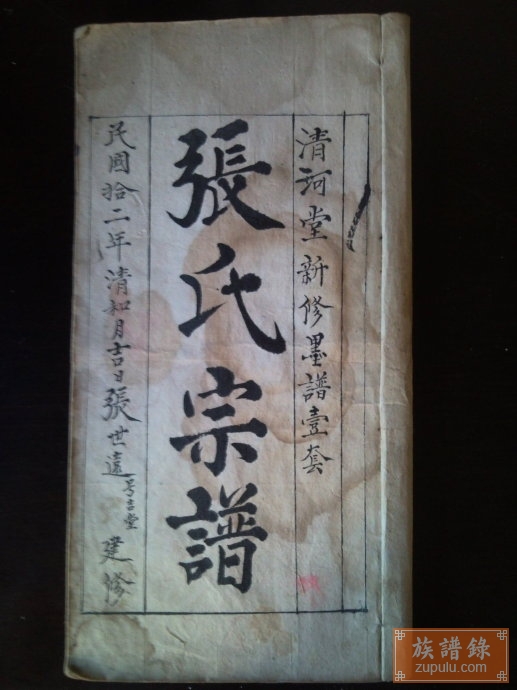 清河堂新修墨譜壹套
張氏宗譜
民國拾二年清和月吉日張世遠号吉堂建修
族譜錄
zupulu.com